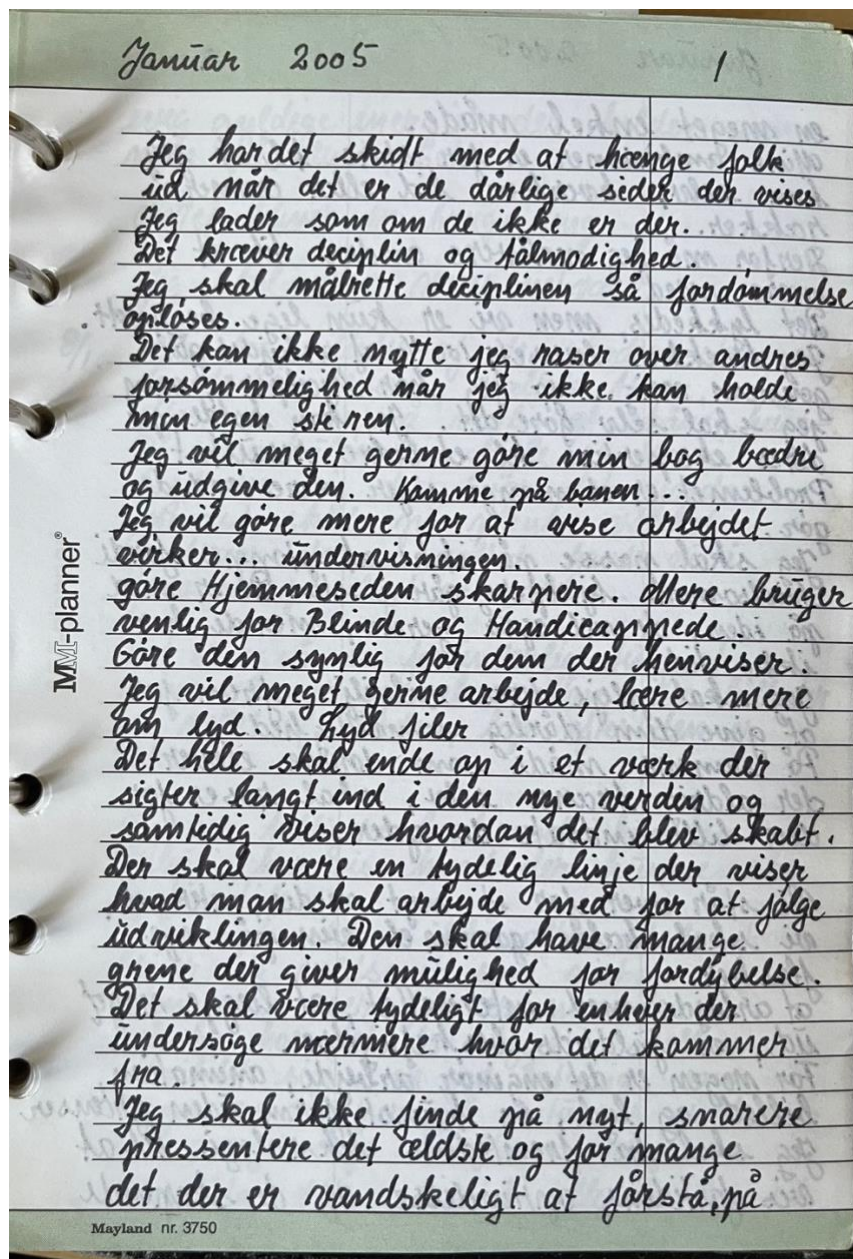 Januar 2005 1
Jeg har det skidt med at hænge folk
ud, når det er de dårlige sider der vises
Jeg lader som om de ikke er der.
Det kræver deciplin og tålmodighed.
Jeg skal målrette deciplinen så fordømmelse
opløses.
Det kan ikke nytte jeg raser over andres
forsømmelighed når jeg ikke kan holde
min egen sti ren.
Jeg vil meget gerne gøre min bog bedre
og udgive den. Komme på banen...
Jeg vil gøre mere for at vise arbejdet
virker... undervisningen.
gøre Hjemmesiden skarpere. Mere bruger
venlig for Blinde og Handicappede.
Gøre den synlig for dem der henviser.
Jeg vil meget gerne arbejde, lære mere
om lyd. Lyd filer
Det hele skal ende op i et værk der
sigter langt ind i den nye verden og
samtidig viser hvordan det blev skabt.
Der skal være en tydelig linje der viser
hvad man skal arbejde med for at følge
udviklingen. Den skal have mange
grene der giver mulighed for fordybelse.
Det skal være tydeligt for enhver der
undersøge nærmere hvor det kommer
fra.
Jeg skal ikke finde på nyt, snarere
pressentere det ældste og for mange
det der er vandskeligt at forstå, på
MM-planner®
Mayland nr. 3750